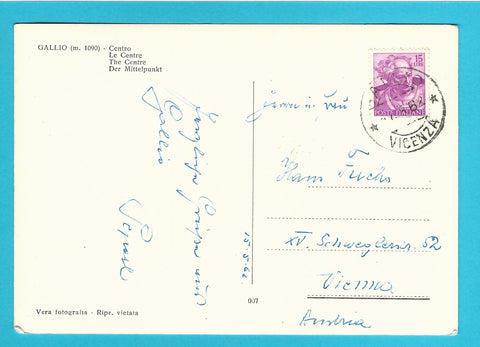 GALLIO (m. 1090) - Centro
Le Centre
The Centre
Der Mittelpunkt
Herzliche Grüße aus
Gallio
15-5-62
Vera fotografia - Ripr. vietata
007
15
LIRE
POSTE ITALIANE
VICENZA
Hans Fuchs
XV. Schweglerstr. 52
Vienna
Austria